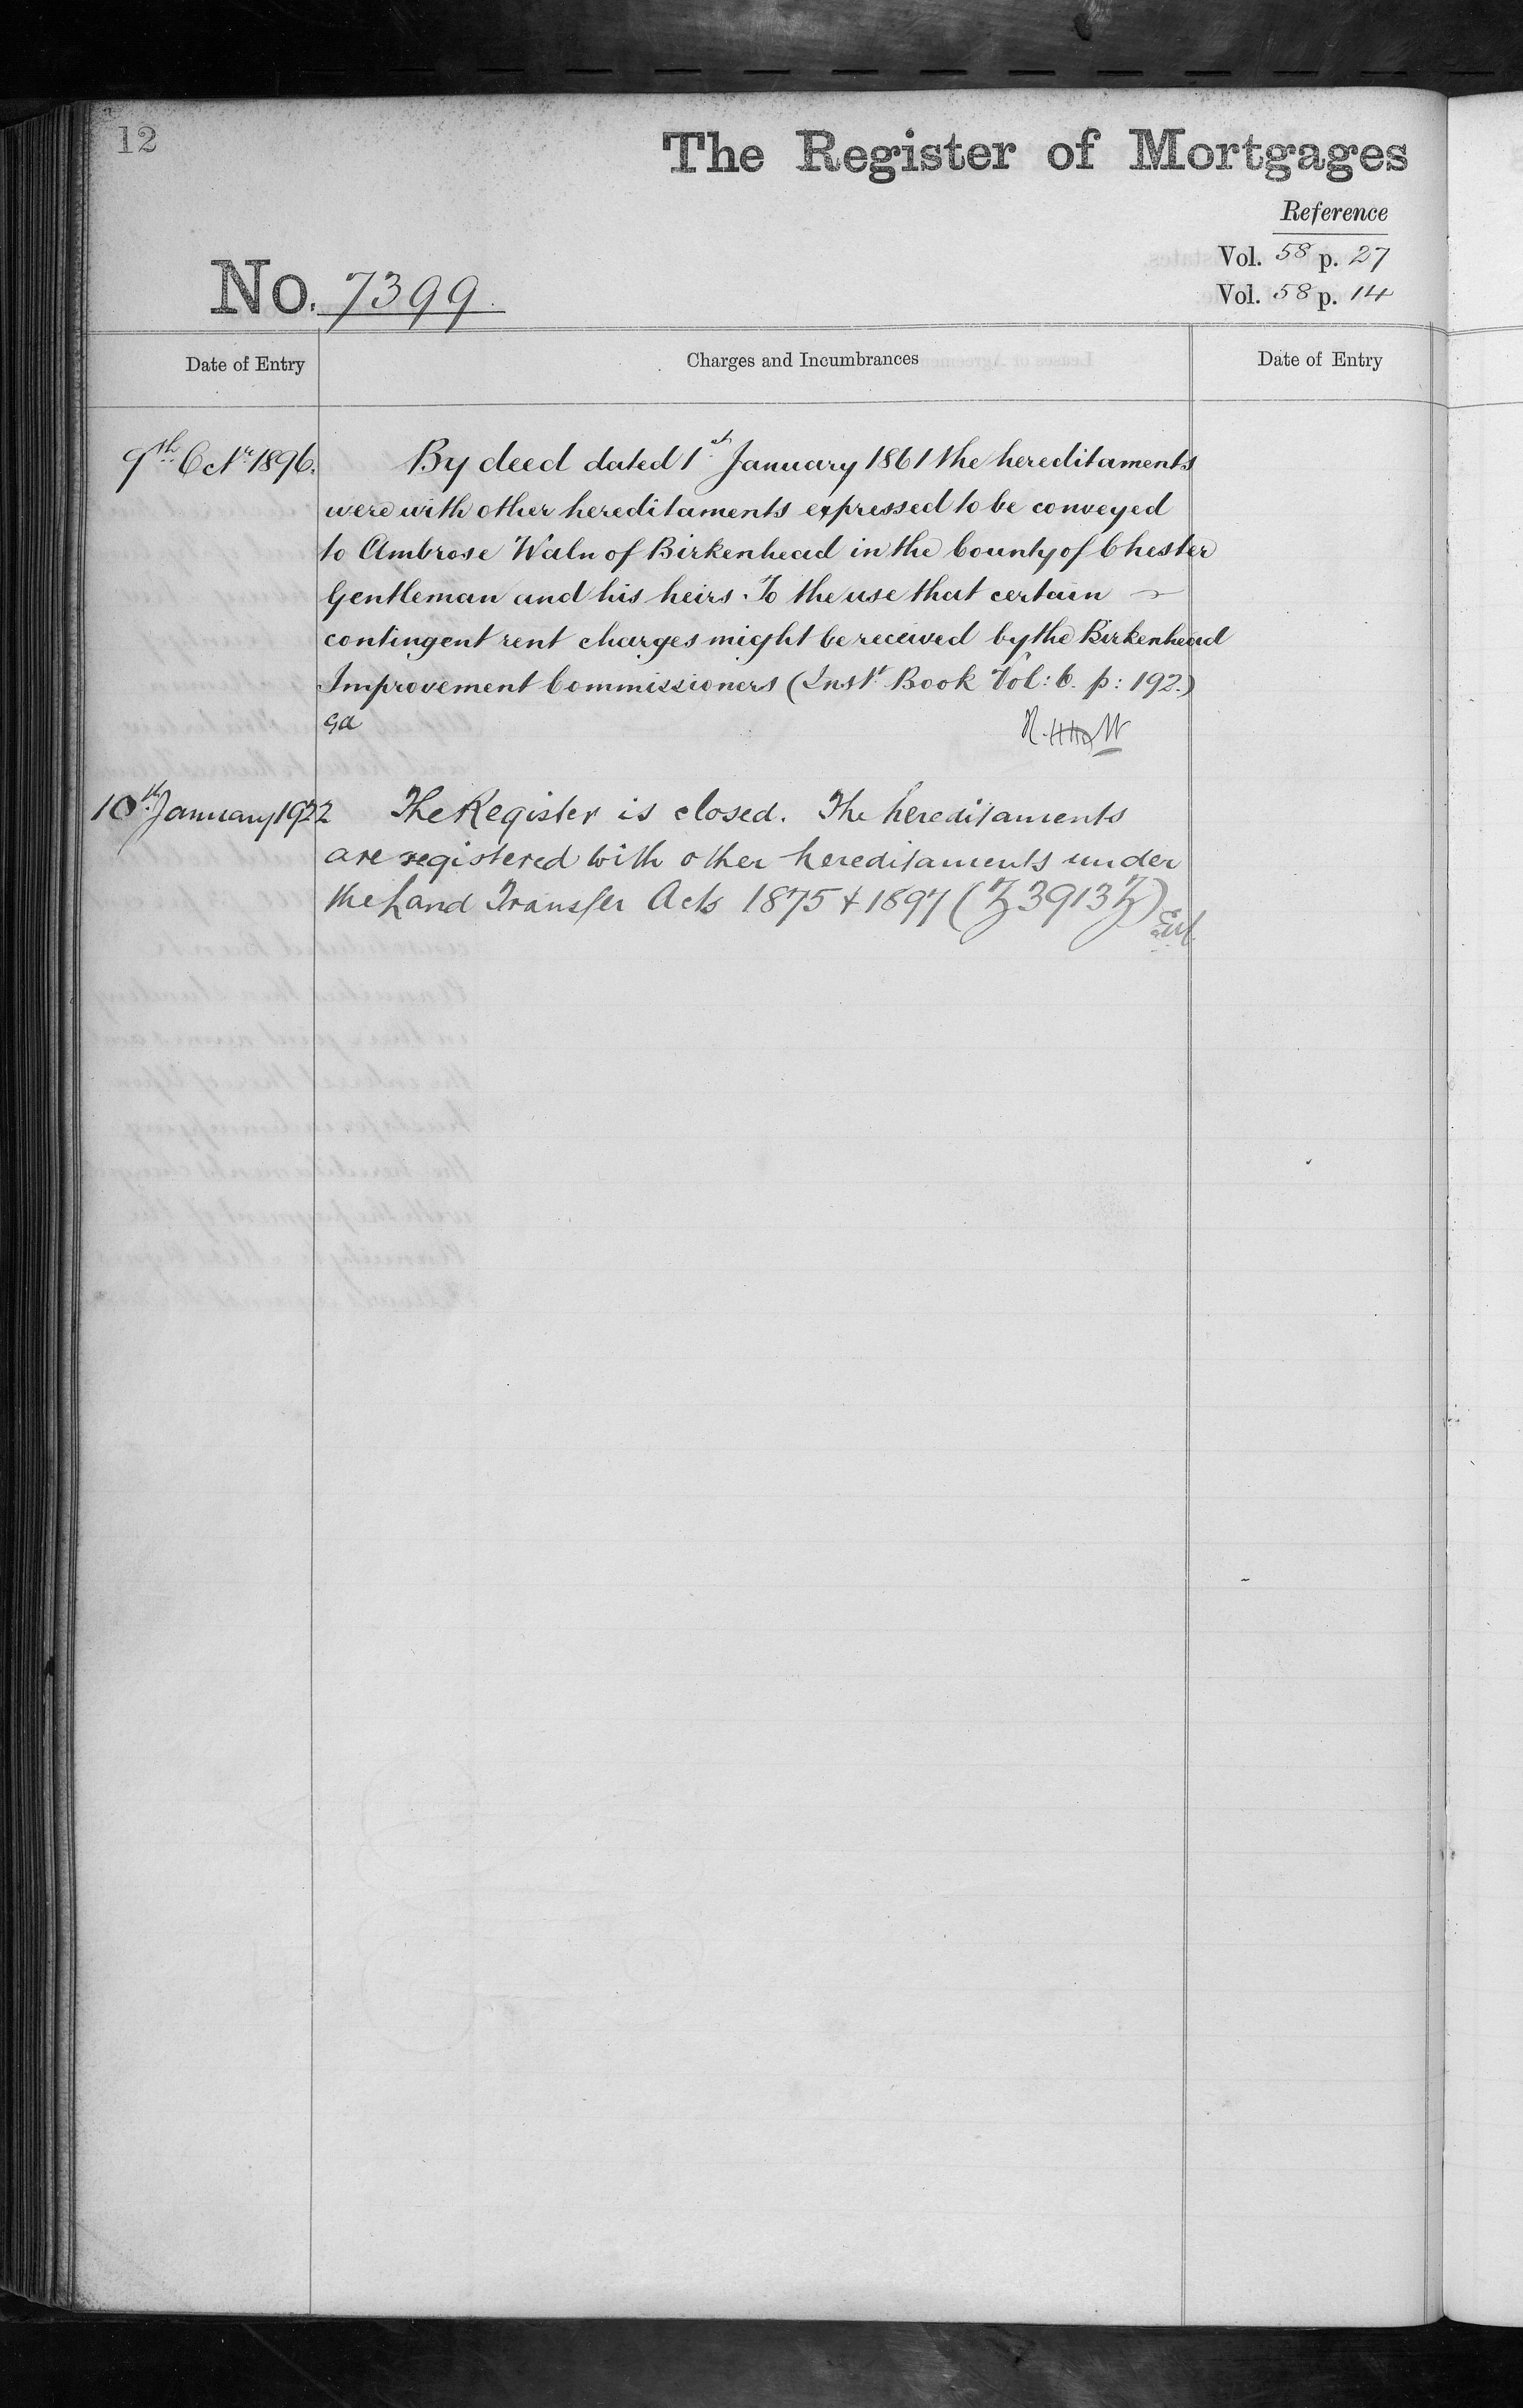 12
The Register of Mortgages
Reference
Vol. 58 p. 27
No. 7399.
Vol. 58 p. 14
Date of Entry
Charges and Incumbrances
Date of Entry
9th Octr 1896.
By deed dated 1st January 1861 the hereditaments
were with other hereditaments expressed to be conveyed
to Ambrose Waln of Birkenhead in the County of Chester
Gentleman and his heirs. To the use that certain
contingent rent charges might be received by the Birkenhead
Improvement Commissioners (Inst Book Vol: 6. p: 192.)
10th January 1922
The Register is closed. The hereditaments
are registered with other hereditaments under
the Land Transfer Acts 1875 & 1897 (Z3913Z)